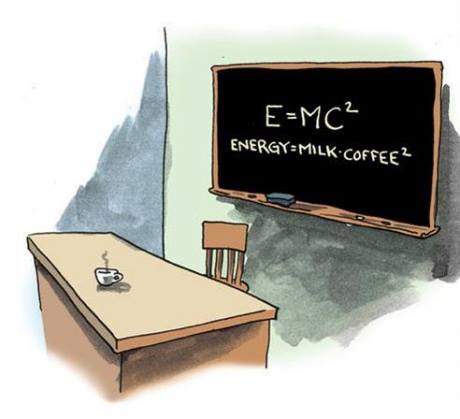 E=MC²
ENERGY=MILK·COFFEE²